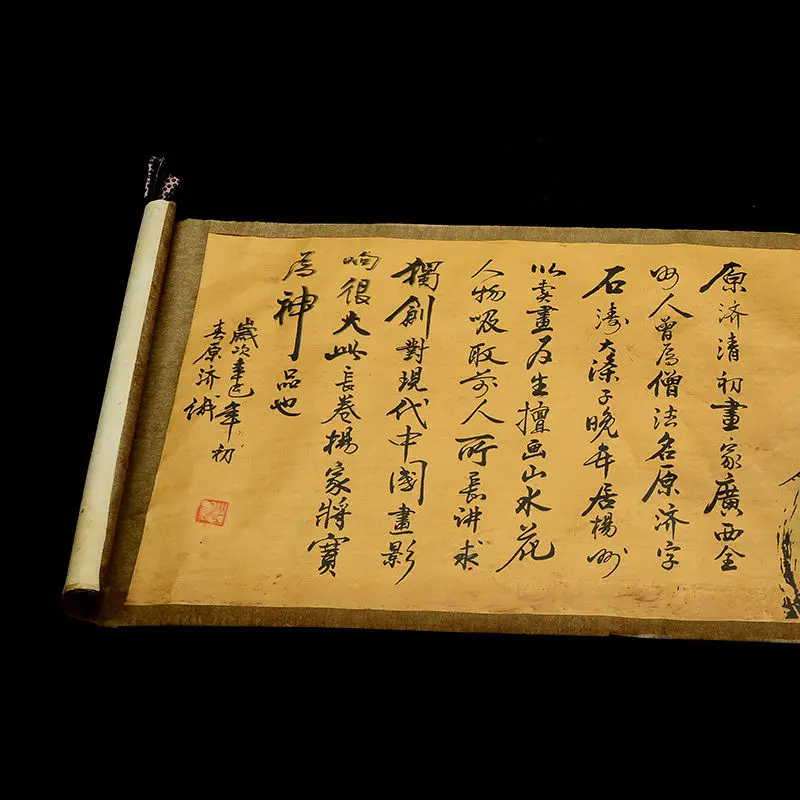 原济清初畫家廣西全
州人曾為僧法名原济字
石涛大滌子晚年居楊州
以卖畫为生擅画山水花
人物吸取前人所長讲求
獨創對現代中國畫影
响很大此長卷揚家將寳
為神品也
歲次辛巳年初
春原济術